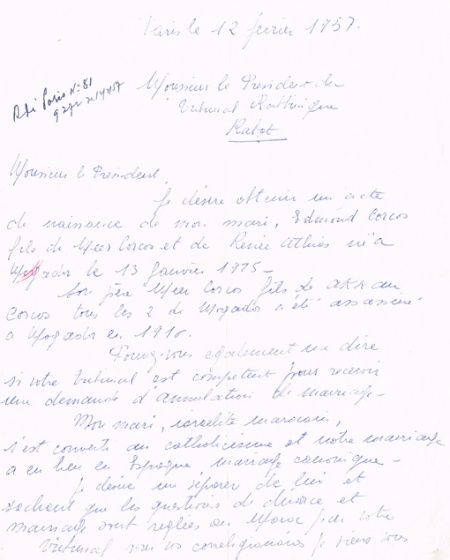 Paris le 12 février 1957.
Monsieur le Président du
Tribunal Rabbinique
Rabat
Rdi Paris N: 81
Monsieur le Président
Je désire obtenir un acte
de naissance de mon mari, Edmond Corcos
fils de Meer Corcos et de Renée Athias né à
Mogador le 13 Janvier 1915 -
Son père Meer Corcos fils de AKKan
Corcos tous les 2 de Mogador a été assassiné
à Mogador en 1916.
Pouvez-vous également me dire
si votre tribunal est compétent pour recevoir
une demande d'annulation de marriage -
Mon mari, israelite marocain,
s'est converti au catholicisme et notre marriage
a eu lieu en Espagne, mariage canonique -
Je désire me séparer de lui et
sachant que les questions de divorce et
marriage sont reglées au Maroc par votre
tribunal vous vos coreligionaires je viens vous